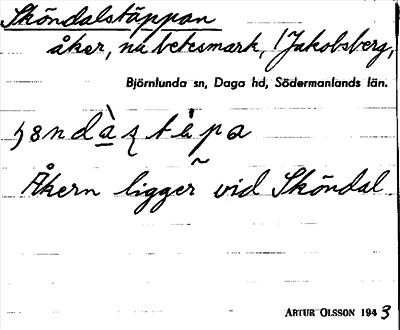 Sköndalstäppan
åker, nu betesmark, Jakobsberg,
Björnlunda sn, Daga hd, Södermanlands län.
Åkern ligger vid Sköndal
ARTUR OLSSON 1943